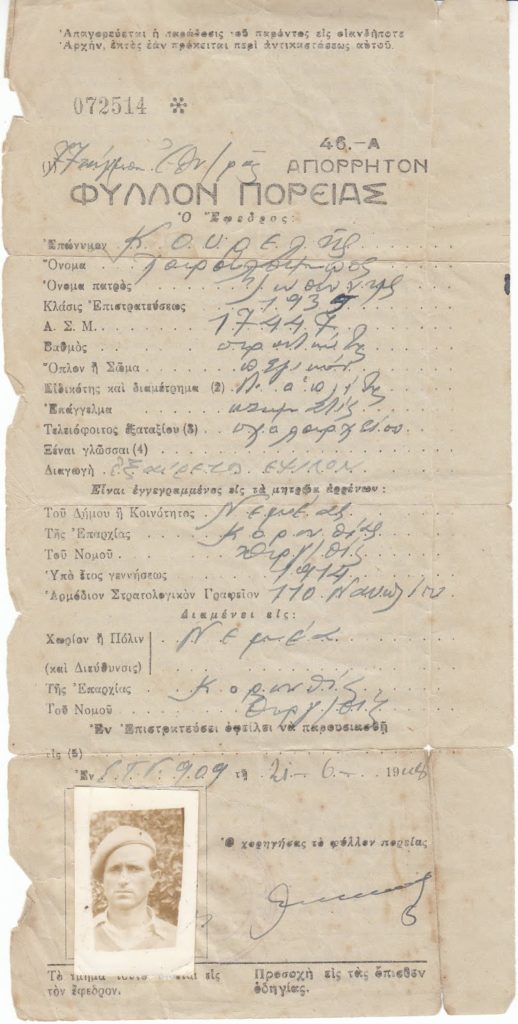 Ἀπαγορεύεται ἡ παράδοσις τοῦ παρόντος εἰς οἱανδήποτε
Ἀρχήν, ἐκτὸς ἐὰν πρόκειται περὶ ἀντικαστάσεως αὐτοῦ.
072514 *
46.-Α
(1) ΑΠΟΡΡΗΤΟΝ
ΦΥΛΛΟΝ ΠΟΡΕΙΑΣ
Ὁ Ἔφεδρος:
Ἐπώνυμον Κουρελῆς
Ὄνομα
Ὄνομα πατρὸς
Κλάσις Ἐπιστρατεύσεως 1935
Α. Σ. Μ. 17447
Βαθμὸς στρατιώτης
Ὅπλον ἢ Σῶμα πεζικόν
Εἰδικότης καὶ διαμέτρημα (2)
Ἐπάγγελμα κτηματίας
Τελειόφοιτος ἢ ἑξαταξίου (3) σχολαρχείου
Ξέναι γλῶσσαι (4)
Διαγωγὴ ἐξαίρετος ΕΨΙΛΟΝ
Εἶναι ἐγγεγραμμένος εἰς τὰ μητρῷα ἀρρένων:
Τοῦ Δήμου ἢ Κοινότητος Νεμέας
Τῆς Ἐπαρχίας Κορινθίας
Τοῦ Νομοῦ Ἀργ/θίας
Ὑπὸ ἔτος γεννήσεως 1914
Ἁρμόδιον Στρατολογικὸν Γραφεῖον 110 Ναυπλίου
Διαμένει εἰς:
Χωρίον ἢ Πόλιν Νεμέα
(καὶ Διεύθυνσις)
Τῆς Ἐπαρχίας Κορινθίας
Τοῦ Νομοῦ Ἀργ/θίας
Ἐν Ἐπιστρατεύσει ὀφείλει νὰ παρουσιασθῇ
εἰς (5)
Ἐν Σ.Τ.Γ. 909 τῇ 21-6- 1948
Ὁ χορηγήσας τὸ φύλλον πορείας
Τὸ τμῆμα τοῦτο δίδεται εἰς
τὸν ἔφεδρον.
Προσοχὴ εἰς τὰς ὄπισθεν
ὁδηγίας.